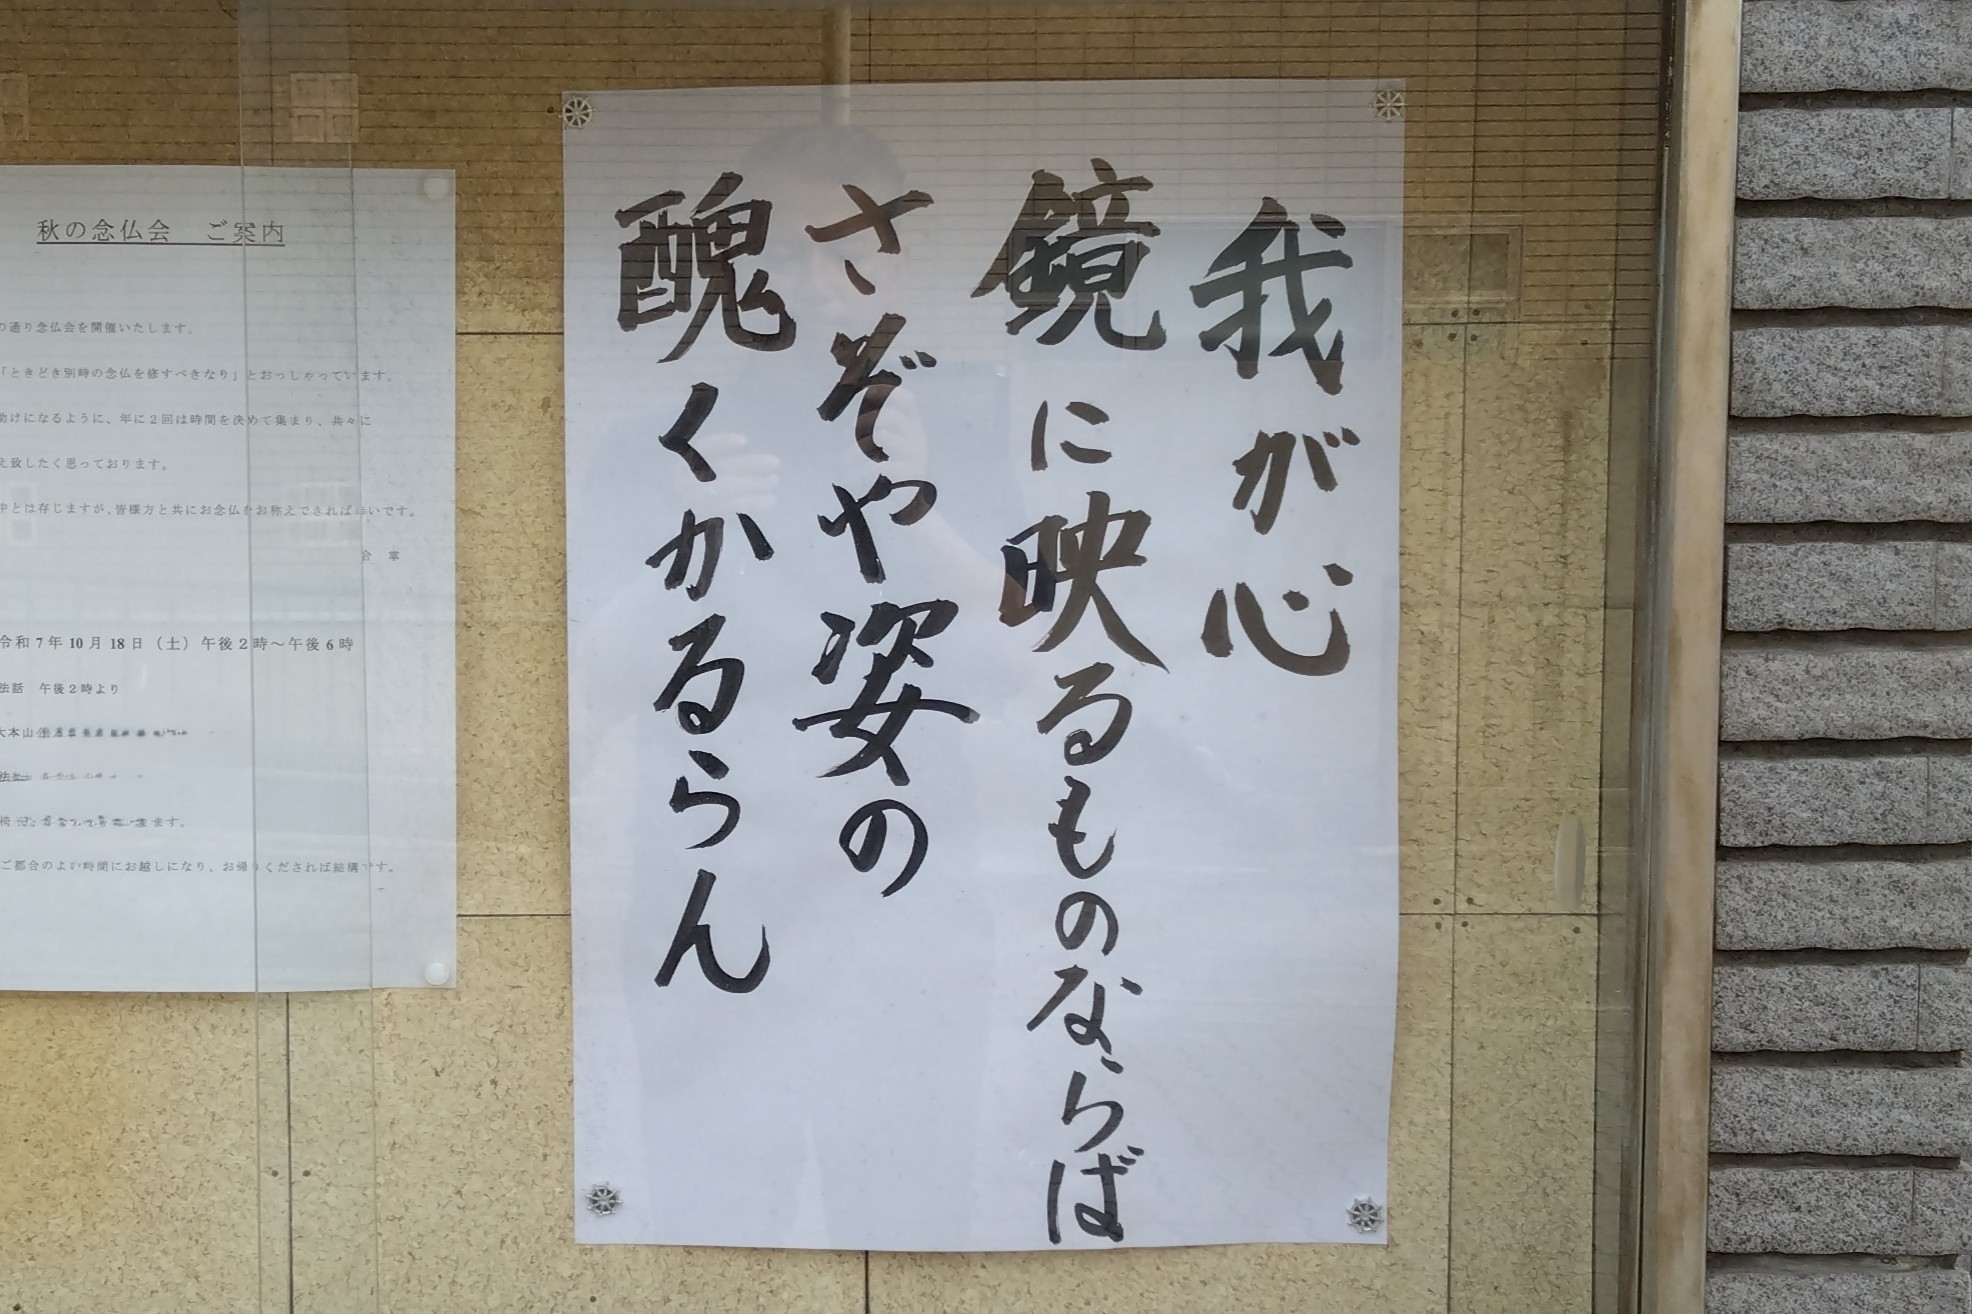 我が心
鏡に映るものならば
さぞや姿の
醜くかるらん
秋の念仏会　ご案内
の通り念仏会を開催いたします。
「ときどき別時の念仏を修すべきなり」とおっしゃっています。
助けになるように、年に2回は時間を決めて集まり、共々に
え致したく思っております。
中とは存じますが、皆様方と共にお念仏をお称えできれば幸いです。
合　掌
令和7年10月18日（土）午後2時～午後6時
法話　午後2時より
大本山
ます。
ご都合のよい時間にお越しになり、お帰りくだされば結構です。